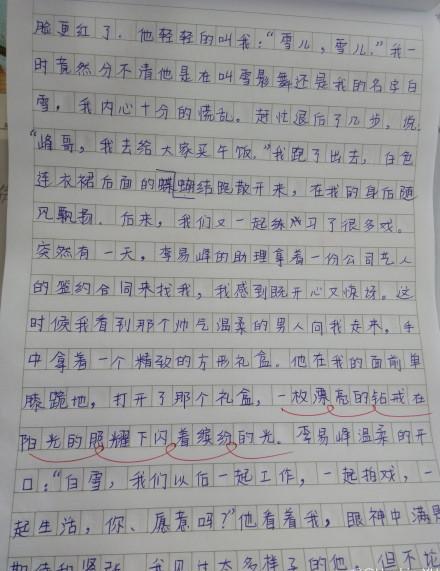 脸更红了。他轻轻的叫我："雪儿，雪儿。"我一
时竟然分不清他是在叫雪影舞还是我的名字白
雪。我内心十分的慌乱。赶忙退后了几步，说，
"峰哥，我去给大家买午饭。"我跑了出去，白色
连衣裙后面的蝴蝶结跑散开来，在我的身后随
风飘扬。后来，我们又一起练习了很多戏。
突然有一天，李易峰的助理拿着一份公司艺人
的签约合同来找我，我感到既开心又惊讶。这
时候我看到那个帅气温柔的男人向我走来，手
中拿着一个精致的方形礼盒。他在我的面前单
膝跪地，打开了那个礼盒，一枚漂亮的钻戒在
阳光的照耀下闪着缤纷的光。李易峰温柔的开
口："白雪，我们以后一起工作，一起拍戏，一
起生活，你、愿意吗？"他看着我，眼神中满是
期待和紧张。我见过太多样子的他，但不论